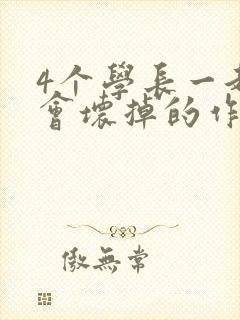 4个學長一
會壞掉的作
傲無常